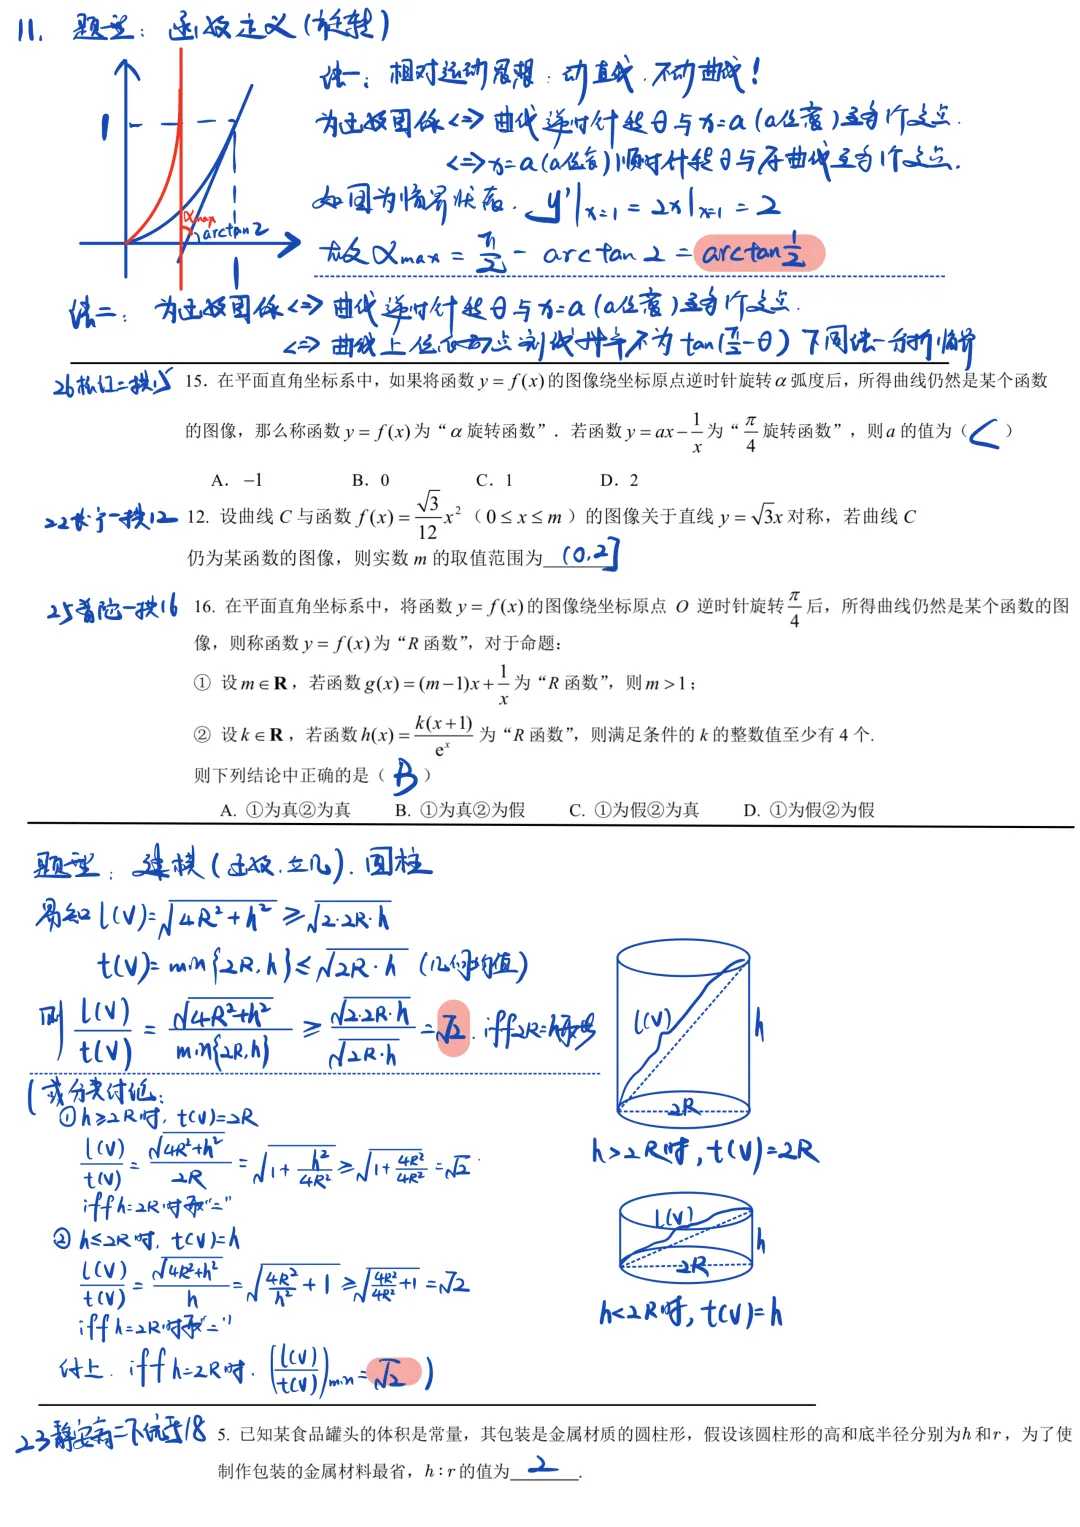 11. 题型：函数定义（旋转）
法一：相对运动思想：动直线，不动曲线！
为函数图像<=>曲线逆时针转θ与x=a（a任意）至多1个交点.
<=>x=a（a任意）顺时针转θ与原曲线至多1个交点.
如图为临界状态. y'|x=1 = 2x|x=1 = 2
1
αmax
arctan2
1
故αmax = π/2 - arctan 2 = arctan 1/2
法二：为函数图像<=>曲线逆时针转θ与x=a（a任意）至多1个交点.
<=>曲线上任意两点割线斜率不为tan(π/2-θ) 下同法一分析临界
26松江二模15 15. 在平面直角坐标系中，如果将函数 y = f(x) 的图像绕坐标原点逆时针旋转 α 弧度后，所得曲线仍然是某个函数
的图像，那么称函数 y = f(x) 为“ α 旋转函数”．若函数 y = ax - 1/x 为“ π/4 旋转函数”，则 a 的值为（ C ）
A. -1 B. 0 C. 1 D. 2
22长宁一模12 12. 设曲线 C 与函数 f(x) = √3/12 x²（0 ≤ x ≤ m）的图像关于直线 y = √3x 对称，若曲线 C
仍为某函数的图像，则实数 m 的取值范围为 (0,2]
25普陀一模16 16. 在平面直角坐标系中，将函数 y = f(x) 的图像绕坐标原点 O 逆时针旋转 π/4 后，所得曲线仍然是某个函数的图
像，则称函数 y = f(x) 为“R 函数”，对于命题：
① 设 m ∈ R，若函数 g(x) = (m-1)x + 1/x 为“R 函数”，则 m > 1；
② 设 k ∈ R，若函数 h(x) = k(x+1)/eˣ 为“R 函数”，则满足条件的 k 的整数值至少有 4 个.
则下列结论中正确的是（ B ）
A. ①为真②为真 B. ①为真②为假 C. ①为假②为真 D. ①为假②为假
题型：建模（函数.立几）.圆柱
易知 l(V)=√(4R²+h²) ≥ √(2·2R·h)
t(V)= min{2R,h} ≤ √(2R·h) （几何均值）
则 l(V)/t(V) = √(4R²+h²)/min{2R,h} ≥ √(2·2R·h)/√(2R·h) = √2. iff 2R=h取等
l(V)
h
2R
（或分类讨论：
①h≥2R时, t(V)=2R
l(V)/t(V) = √(4R²+h²)/2R = √(1+h²/4R²) ≥ √(1+4R²/4R²) = √2
iff h=2R时取"="
h>2R时, t(V)=2R
②h≤2R时, t(V)=h
l(V)/t(V) = √(4R²+h²)/h = √(4R²/h²+1) ≥ √(4R²/4R²+1) = √2
iff h=2R时取"="
l(V)
h
2R
h<2R时, t(V)=h
综上. iff h=2R时. (l(V)/t(V))min = √2 ）
5. 已知某食品罐头的体积是常量，其包装是金属材质的圆柱形，假设该圆柱形的高和底半径分别为 h 和 r，为了使
制作包装的金属材料最省，h∶r 的值为 2 .